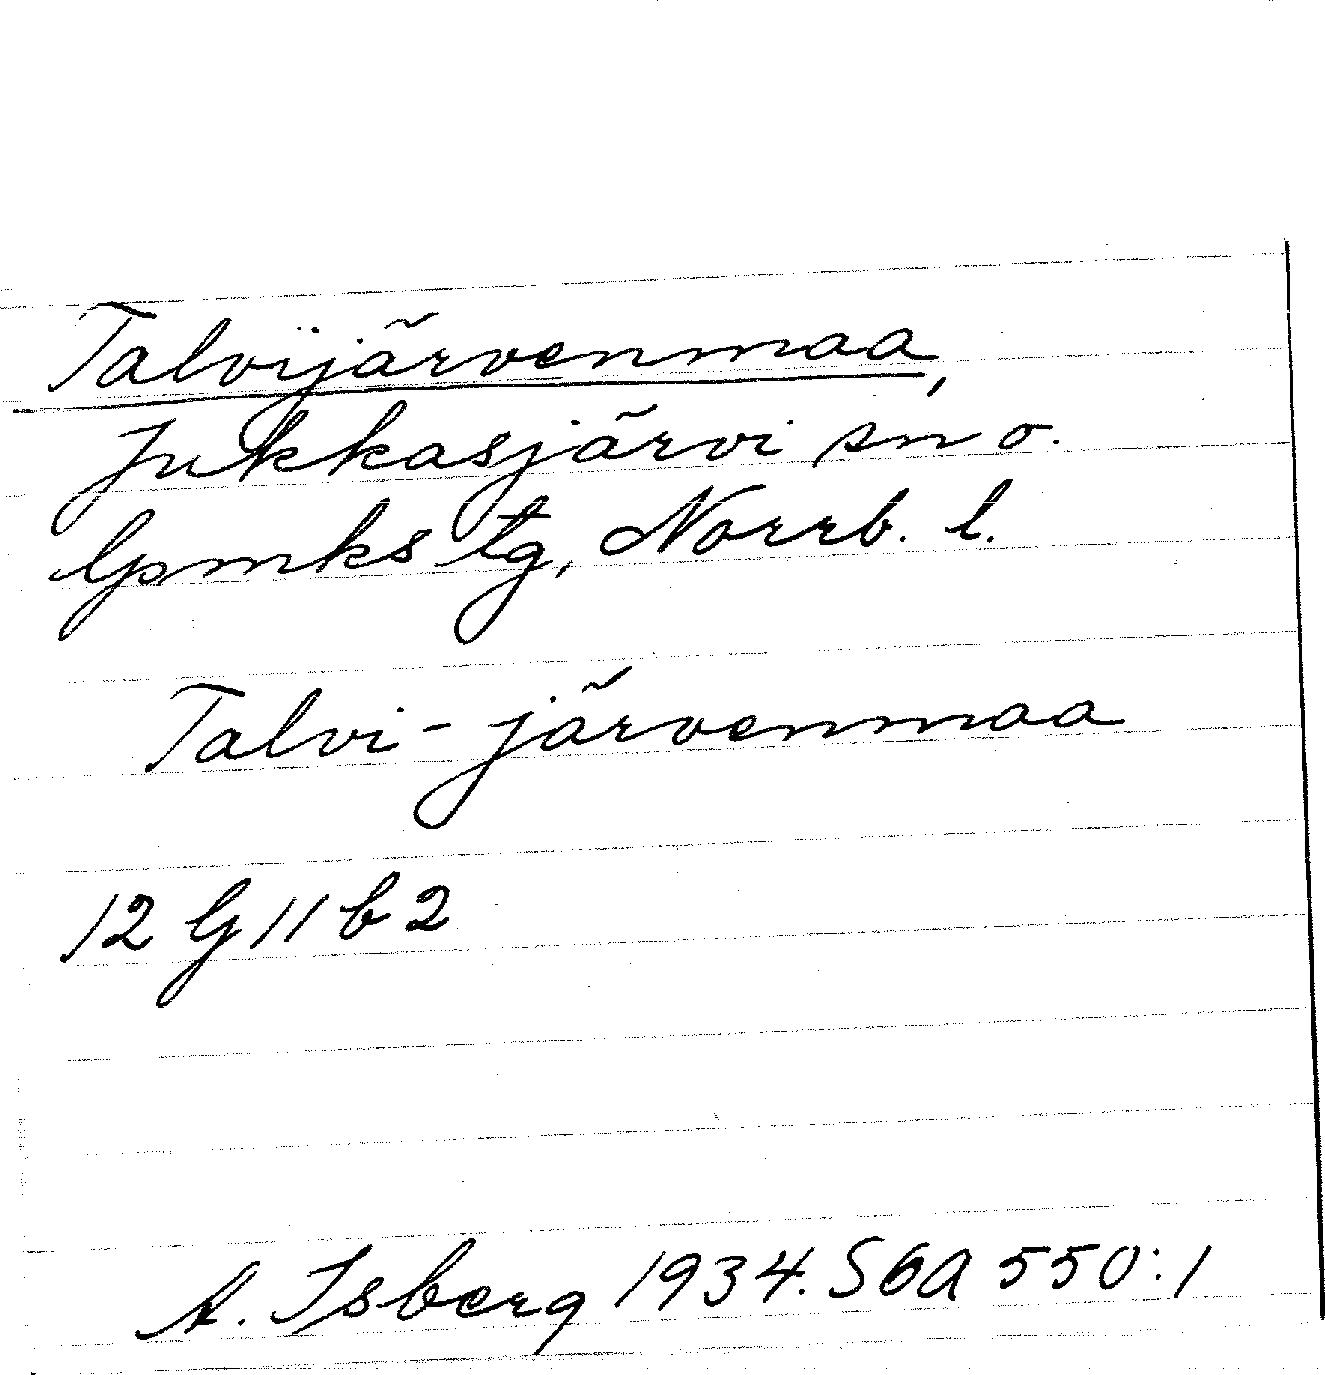 Talvijärvenmaa,
Jukkasjärvi sn o.
lpmks tg, Norrb. l.
Talvi-järvenmaa
12 G 11 b 2
A. Isberg 1934. SGA 550:1